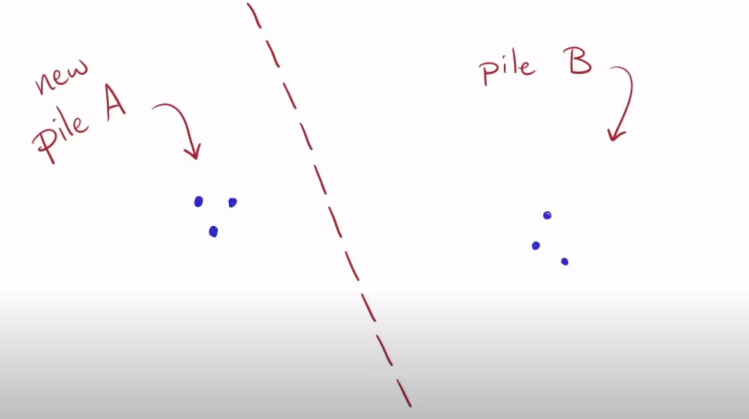 new
pile A
pile B